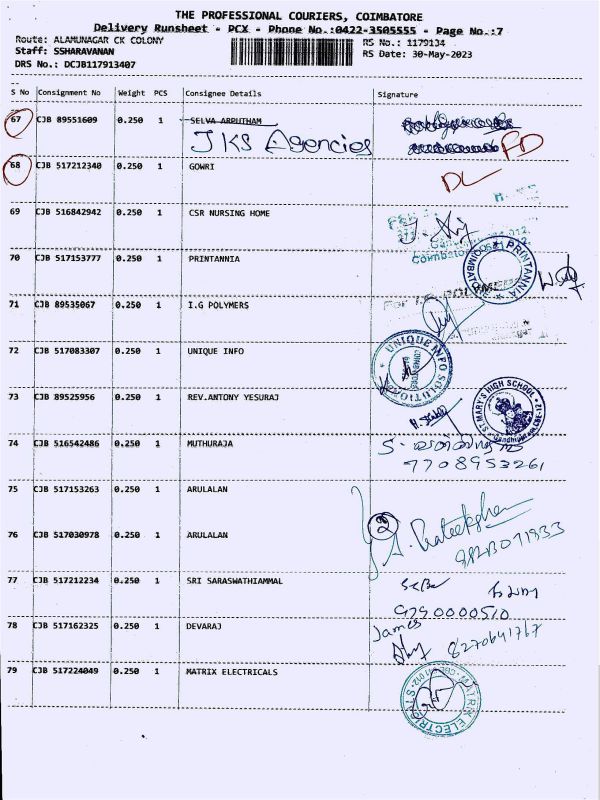 THE PROFESSIONAL COURIERS, COIMBATORE
Delivery Runsheet - PCX - Phone No.:0422-3505555 - Page No.:7
Route: ALAMUNAGAR CK COLONY
RS No.: 1179134
Staff: SSHARAVANAN
RS Date: 30-May-2023
DRS No.: DCJB117913407
S No Consignment No Weight PCS Consignee Details Signature
67 CJB 89551609 0.250 1 SELVA ARPUTHAM
JKS Agencies RD
68 CJB 517212340 0.250 1 GOWRI
DL
69 CJB 516842942 0.250 1 CSR NURSING HOME
Coimbatore
70 CJB 517153777 0.250 1 PRINTANNIA
PRINTANNIA
71 CJB 89535067 0.250 1 I.G POLYMERS
72 CJB 517083307 0.250 1 UNIQUE INFO
UNIQUE INFO SOLUTIONS
73 CJB 89525956 0.250 1 REV.ANTONY YESURAJ
ST.MARY'S HIGH SCHOOL
74 CJB 516542486 0.250 1 MUTHURAJA
7708953261
75 CJB 517153263 0.250 1 ARULALAN
2
76 CJB 517030978 0.250 1 ARULALAN
77 CJB 517212234 0.250 1 SRI SARASWATHIAMMAL
9790000510
78 CJB 517162325 0.250 1 DEVARAJ
James
8270641767
79 CJB 517224049 0.250 1 MATRIX ELECTRICALS
MATRIX ELECTRICALS